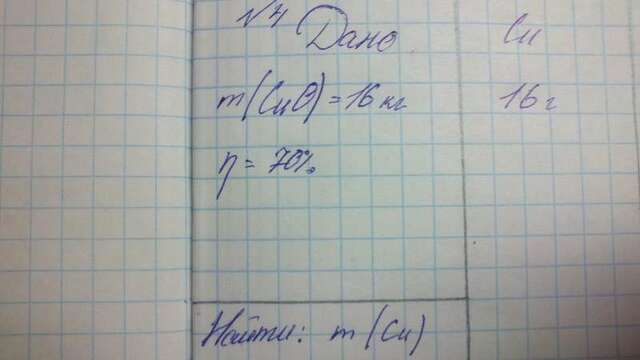 №4 Дано
m(CuO) = 16 кг
η = 70%
Найти: m(Cu)
Cu
16 г